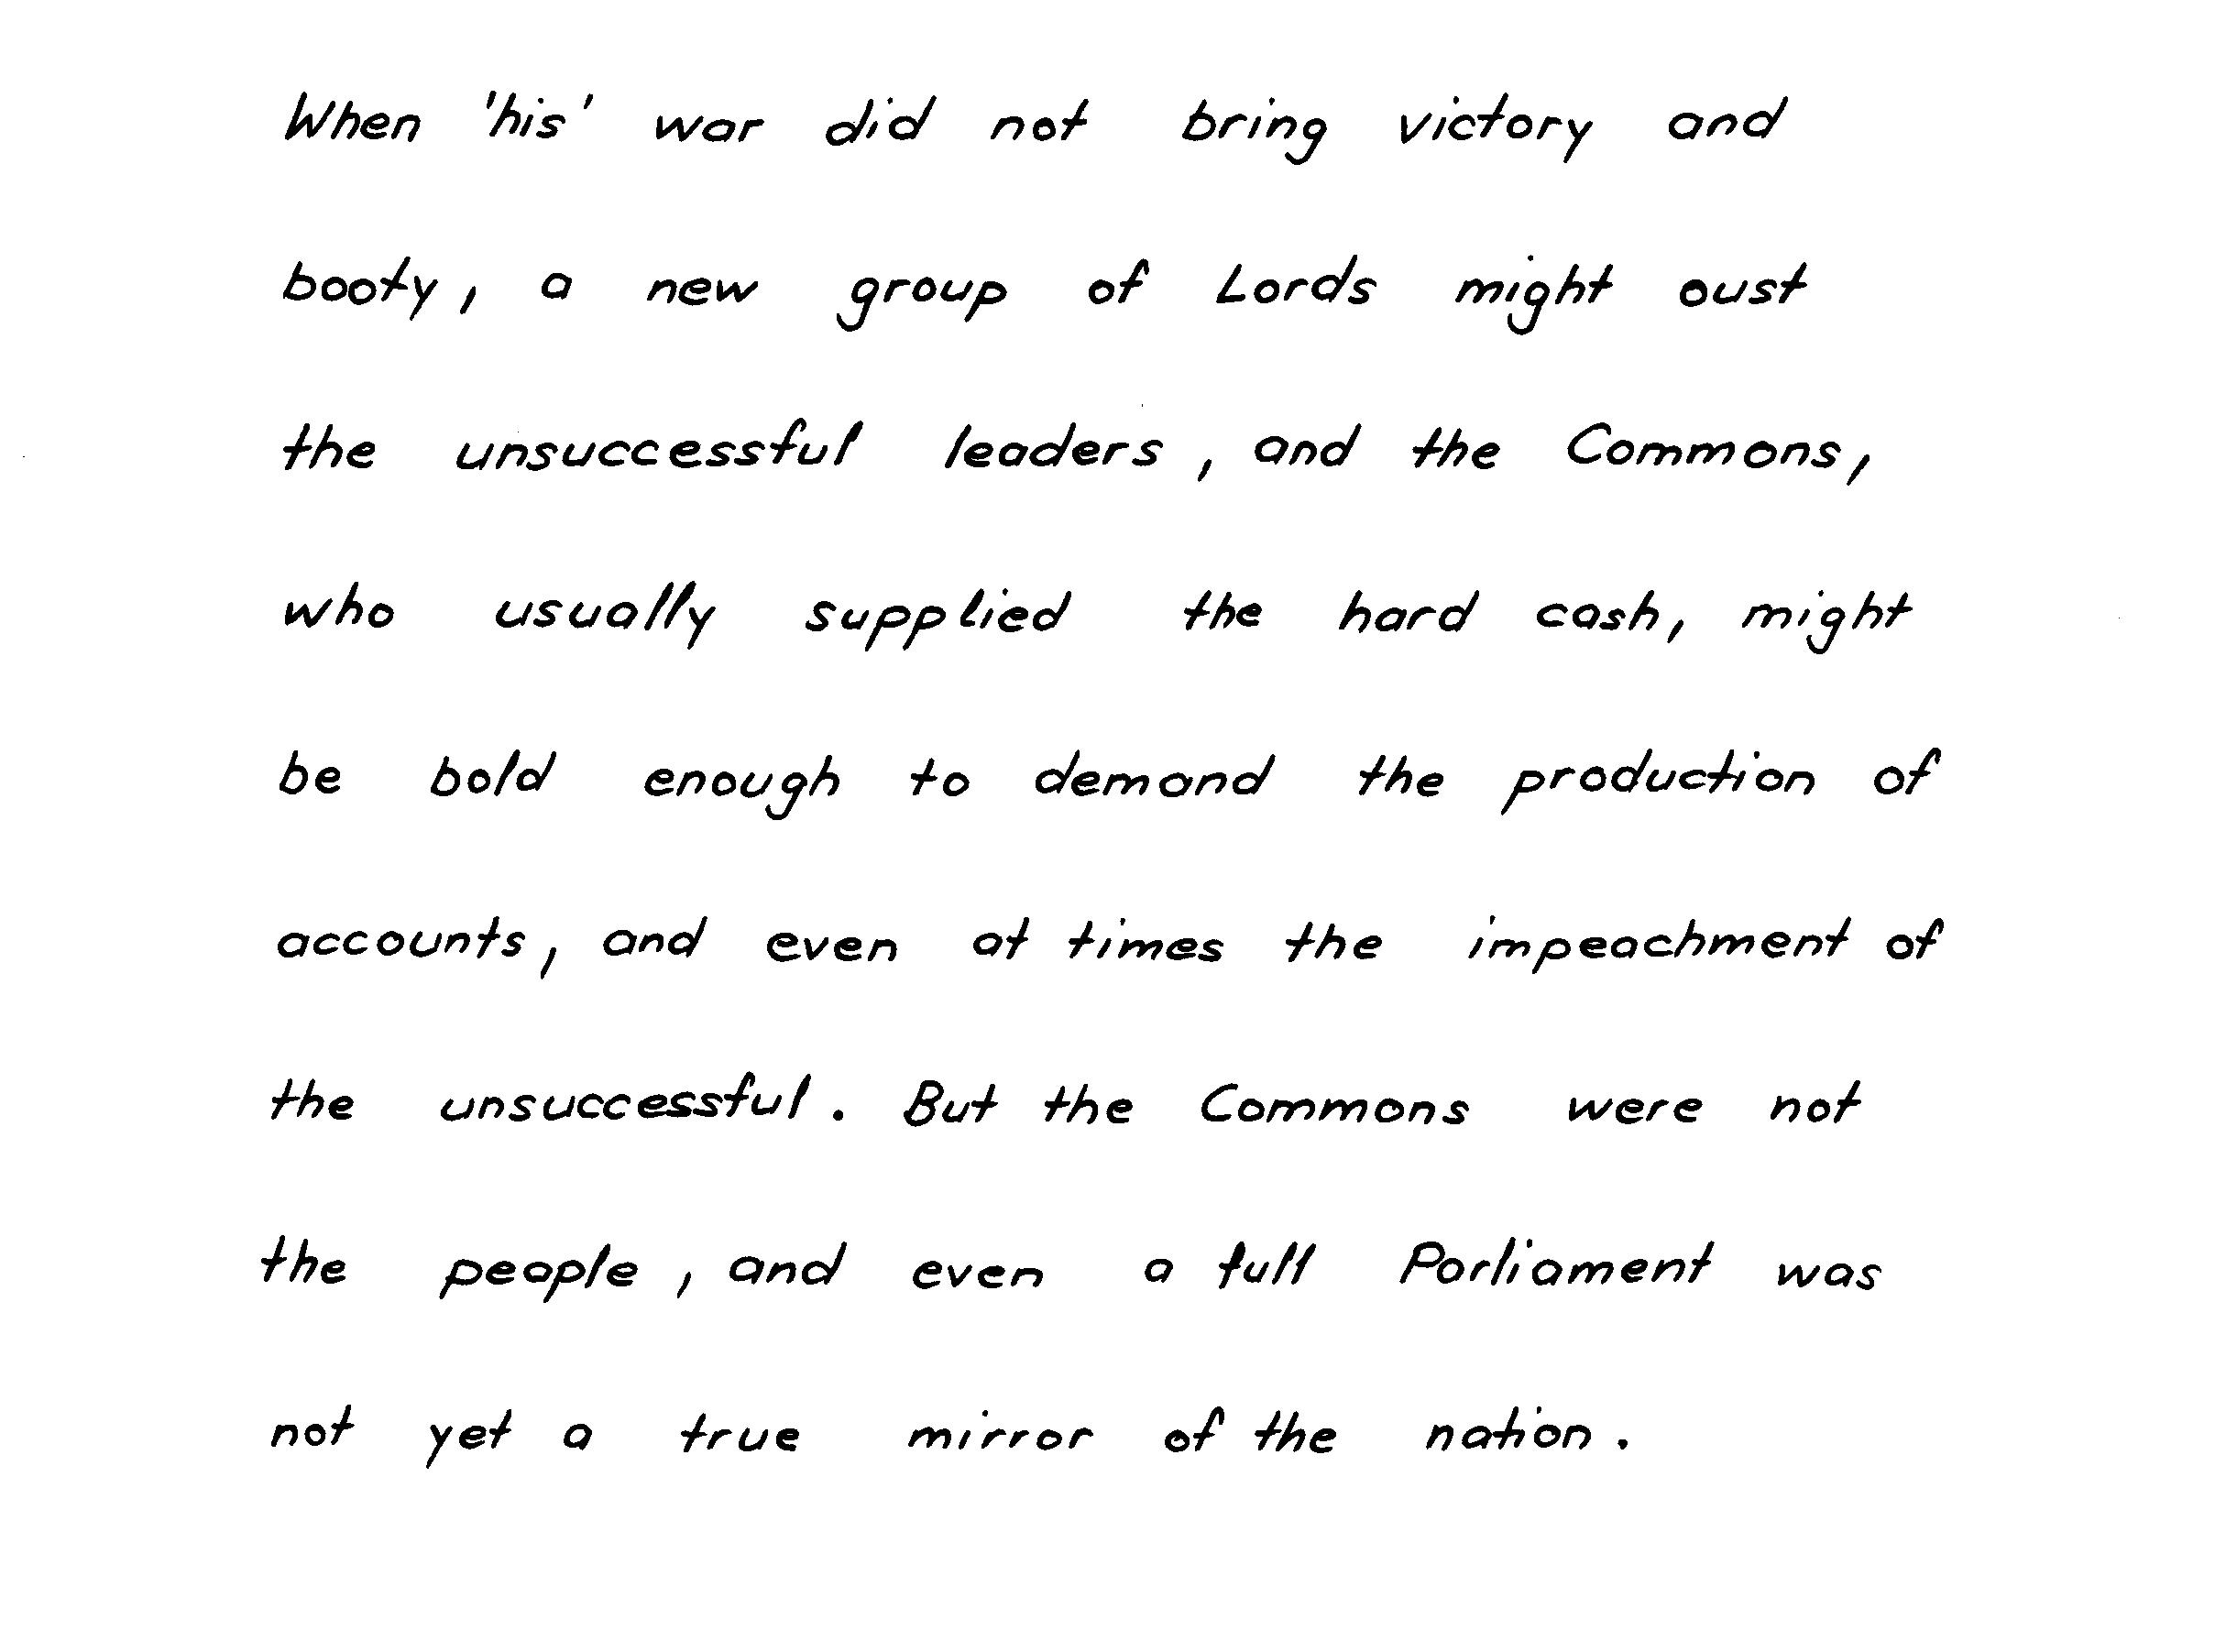 When 'his' war did not bring victory and
booty, a new group of Lords might oust
the unsuccessful leaders, and the Commons,
who usually supplied the hard cash, might
be bold enough to demand the production of
accounts, and even at times the impeachment of
the unsuccessful. But the Commons were not
the people, and even a full Parliament was
not yet a true mirror of the nation.